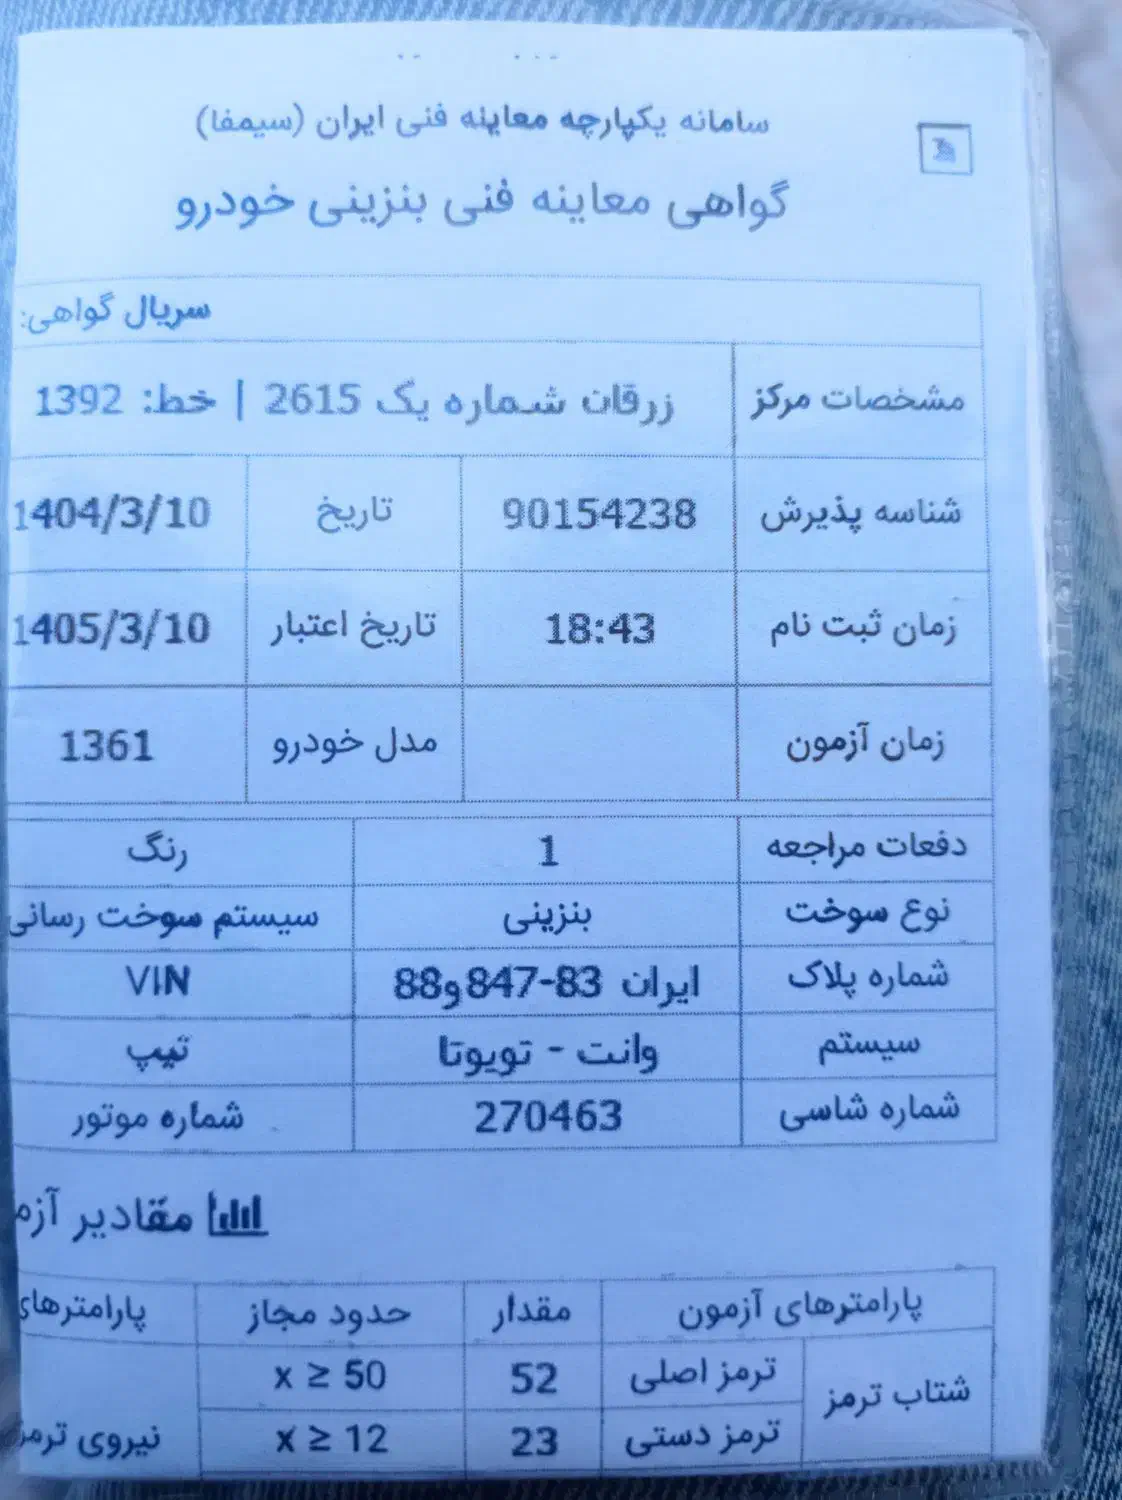 سامانه یکپارچه معاینه فنی ایران (سیمفا)
گواهی معاینه فنی بنزینی خودرو
سریال گواهی:
مشخصات مرکز زرقان شماره یک 2615 | خط: 1392
شناسه پذیرش 90154238 تاریخ 1404/3/10
زمان ثبت نام 18:43 تاریخ اعتبار 1405/3/10
زمان آزمون مدل خودرو 1361
دفعات مراجعه 1 رنگ
نوع سوخت بنزینی سیستم سوخت رسانی
شماره پلاک ایران 83-847و88 VIN
سیستم وانت - تویوتا تیپ
شماره شاسی 270463 شماره موتور
مقادیر
پارامترهای آزمون مقدار حدود مجاز پارامترهای
شتاب ترمز ترمز اصلی 52 x ≥ 50
ترمز دستی 23 x ≥ 12 نیروی ترمز